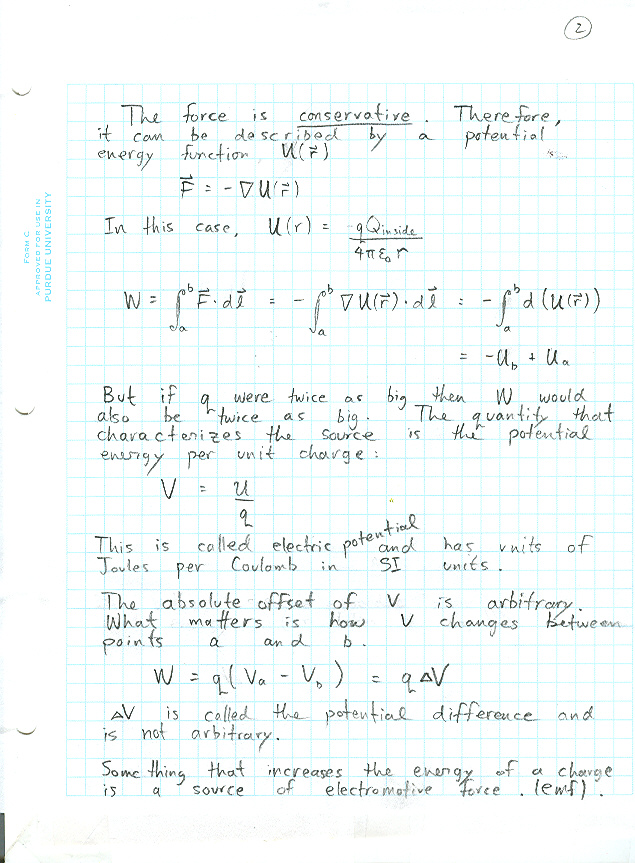 2
The force is conservative. Therefore,
it can be described by a potential
energy function U(r⃗)
F⃗ = -∇U(r⃗)
In this case, U(r) = qQinside / 4πε₀r
FORM C
APPROVED FOR USE IN
PURDUE UNIVERSITY
W = ∫ₐᵇ F⃗·dl⃗ = -∫ₐᵇ ∇U(r⃗)·dl⃗ = -∫ₐᵇ d(U(r⃗))
= -U_b + U_a
But if q were twice as big then W would
also be twice as big. The quantity that
characterizes the source is the potential
energy per unit charge:
V = U / q
This is called electric potential and has units of
Joules per Coulomb in SI units.
The absolute offset of V is arbitrary.
What matters is how V changes between
points a and b.
W = q(V_a - V_b) = qΔV
ΔV is called the potential difference and
is not arbitrary.
Something that increases the energy of a charge
is a source of electromotive force. (emf).